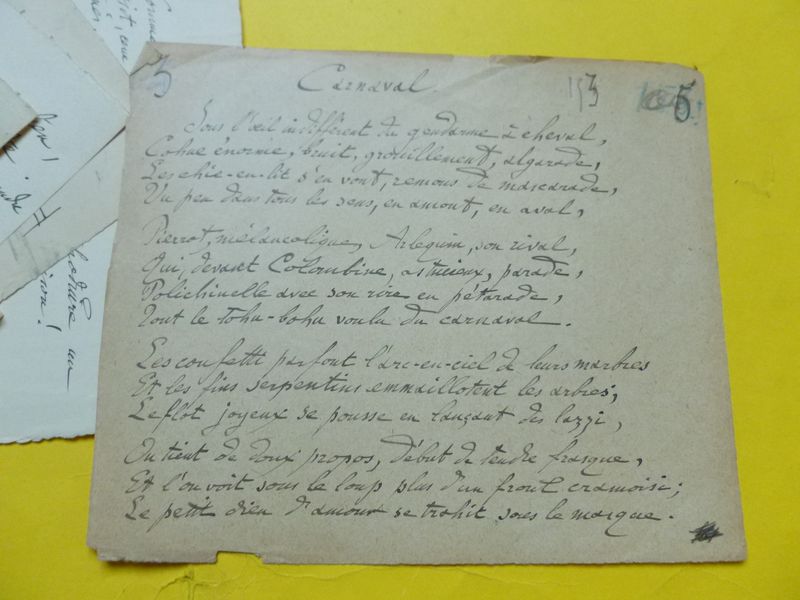 3
Carnaval.
153
5
Sous l'œil indifférent du gendarme à cheval,
Cohue énorme, bruit, grouillement, algarade,
Les chie-en-lit s'en vont, remous de mascarade,
Un peu dans tous les sens, en amont, en aval,
Pierrot, mélancolique, Arlequin, son rival,
Qui, devant Colombine, astucieux, parade,
Polichinelle avec son rire en pétarade,
Tout le tohu-bohu voulu du carnaval.
Les confetti parfont l'arc-en-ciel de leurs marbres
Et les fins serpentins emmaillotent les arbres;
Le flot joyeux se pousse en lançant des lazzi,
On tient de doux propos, début de tendre frasque,
Et l'on voit sous le loup plus d'un front cramoisi;
Le petit dieu d'amour se trahit sous le masque.